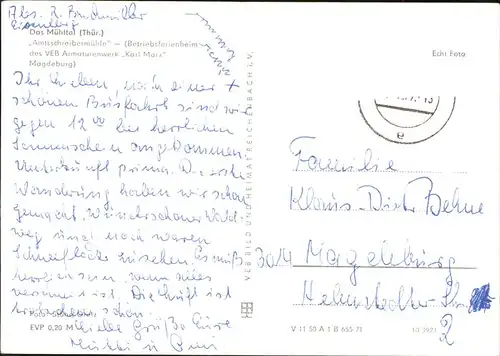 Abs. R.
Eisenberg
Das Mühltal (Thür.)
„Amtsschreibermühle" — (Betriebsferienheim
des VEB Armaturenwerk „Karl Marx"
Magdeburg)
Echt Foto
Ihr Lieben, nach einer
schönen Busfahrt sind wir
gegen 12 00 bei herrlichen
Sonnenschein angekommen
Unterkunft prima. Die erste
Wanderung haben wir schon
gemacht, wunderschöner Wald-
weg und noch waren
Schneeflecke zu sehen. Es muß
herrlich sein, wenn alles
verschneit ist. Die Luft ist
schon.
EVP 0,20 M
Viele Grüße Eure
Mutti u.
VEB BILD UND HEIMAT REICHENBACH I. V.
e
Familie
Klaus-Dieter Behne
3014 Magdeburg
Helmstedter-Str.
2
V 11 50 A 1 B 665/71